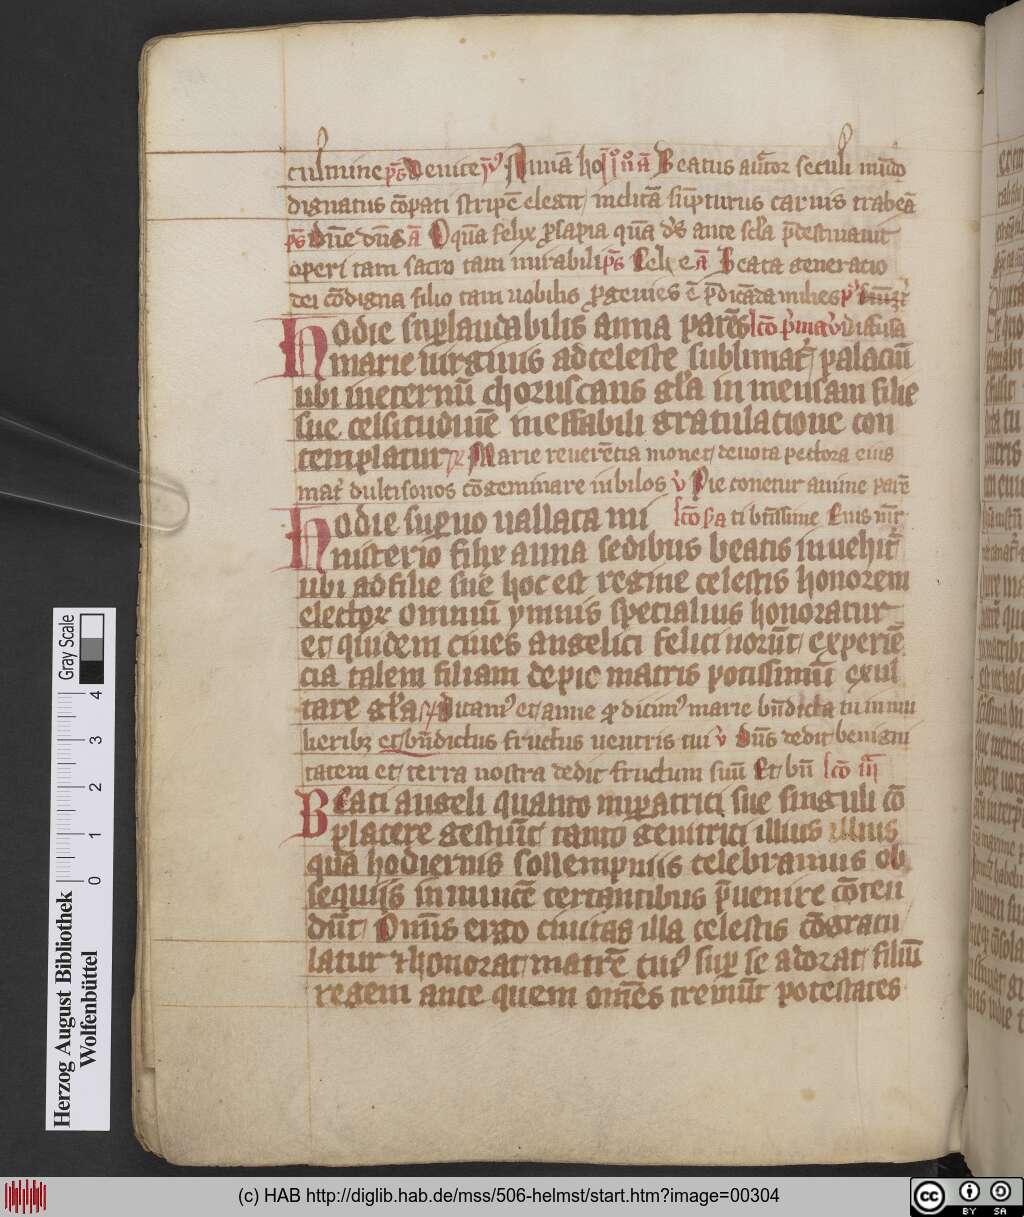 culmine ps Venite ymͧ Annā ho i n ā Beatus auctor seculi mūdo
dignatus cōpati stirpē elegit / inclitā sūpturus carnis trabeā
ps Dn̄e dn̄s ā O quā felix prosapia quā ds̄ ante scl̄a p̄destinauit
operi tam sacro tam mirabili ps Celi e ā Beata generatio
dei cōdigna filio tam nobilis progenies ē p̄dicāda milies
Hodie suꝑlaudabilis anna parēs lcō p̄ma diffusa
marie uirginis ad celeste sublimat᷑ palaciū
ubi in eternū choruscans gl̄a in mensam filie
sue celsitudinē ineffabili gratulatione con
templatur R Marie reuerētia monet / deuota pectora eius
mat᷑ dulcisonos cōgeminare iubilos v̓ Pie conetur anime parē
Hodie superno uallata mi lcō ija ti btīssime Eius mr̄
nisterio felix anna sedibus beatis inuehit᷑
ubi ad filie sue hoc est regine celestis honorem
elector omniū ymnis specialius honoratur
et quidem ciues angelici felici norūt / experiē
cia talem filiam de pie matris potissimū exul
tare gl̄a R Dicamꝰ et anne ꝙ dicimꝰ marie bn̄dicta tu in mu
lieribꝫ et bn̄dictus fructus uentris tui v̓ Dn̄s dedit benigni
tatem et terra nostra dedit fructum suū Et bn̄ lcō iij
Beati angeli quanto imperatrici sue singuli cō
placere gestiūt tanto genitrici illius illius
quā hodiernis sollempniis celebramus ob
sequiis in inuicē certantibus p̄uenire cōten
dūt / Omīs ergo ciuitas illa celestis cōgratu
latur et honorat / matrē cuiꝰ sup se adorat / filiū
regem ante quem omēs tremūt potestates
Herzog August Bibliothek
Wolfenbüttel
0 1 2 3 4
Gray Scale
(c) HAB http://diglib.hab.de/mss/506-helmst/start.htm?image=00304
cc BY SA